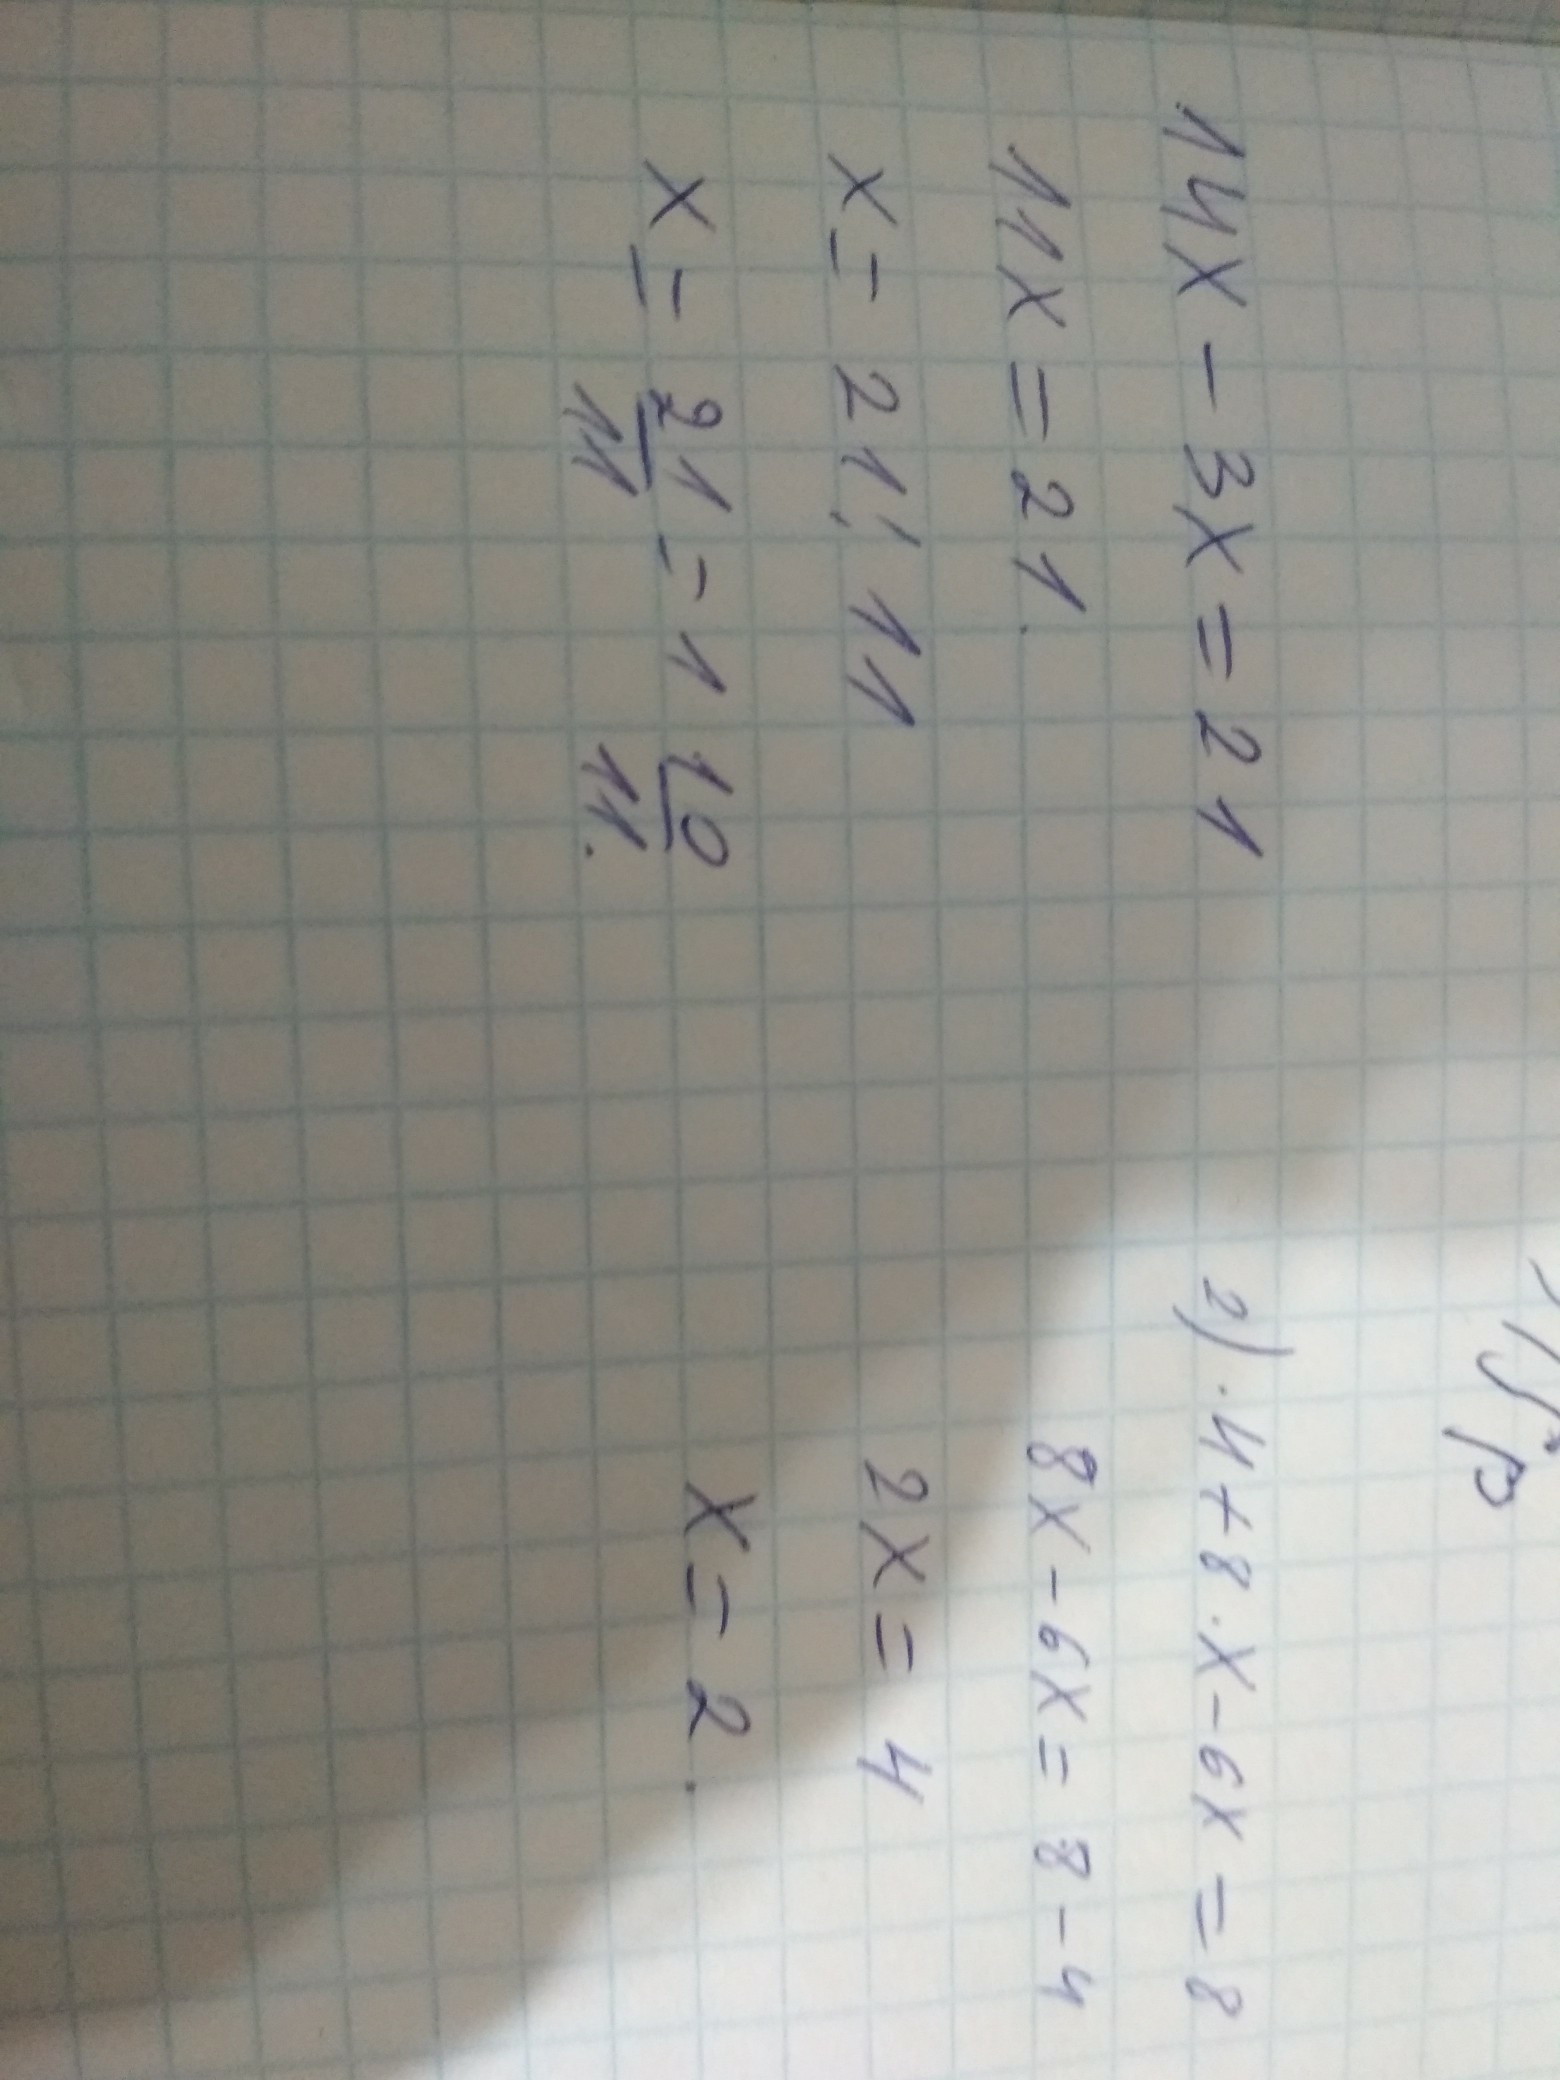 14x - 3x = 21
11x = 21.
x = 21 : 11
x = 21/11 = 1 10/11.
2) . 4 + 8 . x - 6x = 8
8x - 6x = 8 - 4
2x = 4
x = 2.